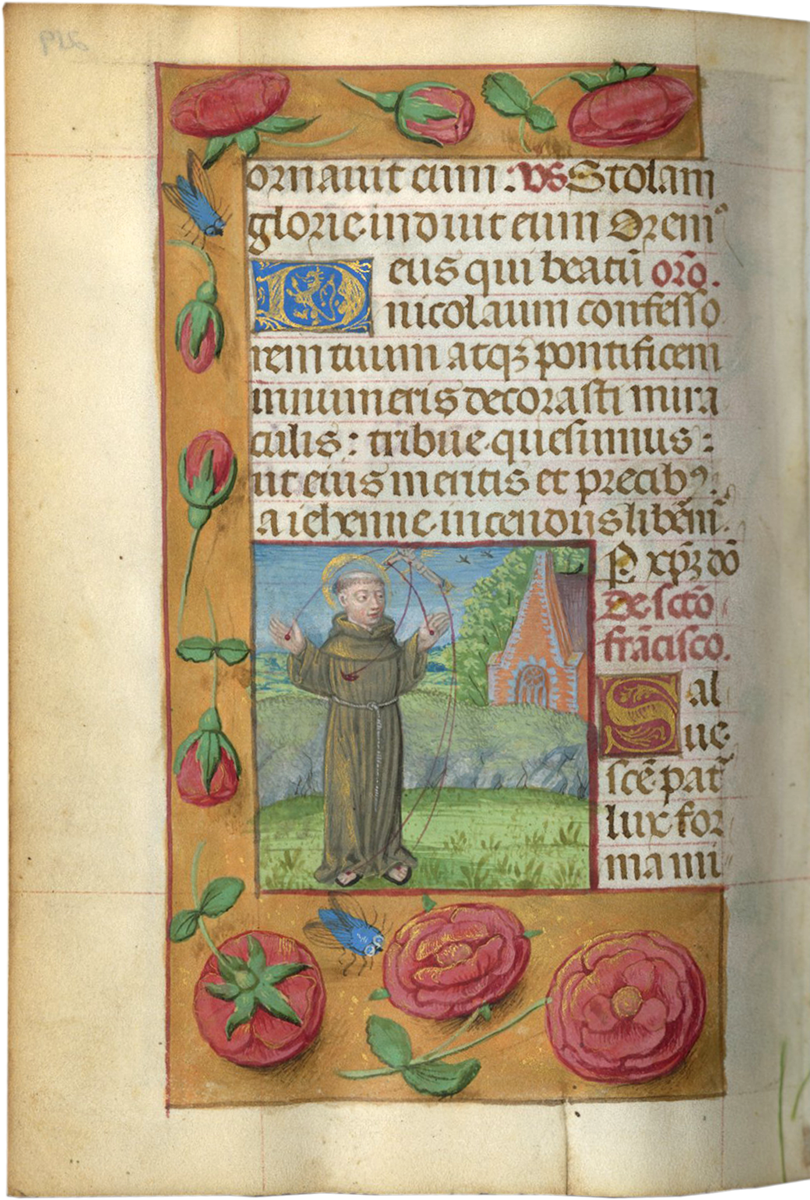 ornauit eum : vs Stolam
glorie induit eum Orem⁹
Deus qui beatū oro̅.
nicolaum confesso
rem tuum atqꝫ pontificem
innumeris decorasti mira
culis : tribue quesumus :
ut eius meritis et precib⁹.
a iehenne incendiis liberem̅.
P xp̅ꝫ do̅
De scto̅
fra̅cisco.
Sal
ue
sce̅ pat̅
lux for
ma mi